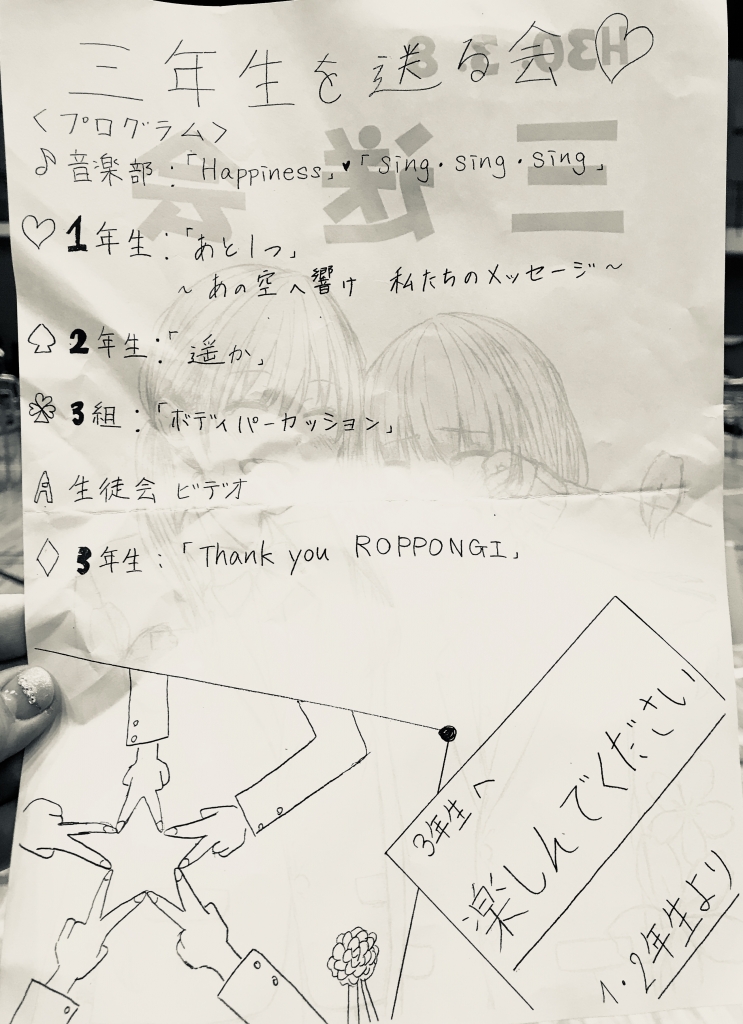 三年生を送る会♡
<プログラム>
♪ 音楽部:「Happiness」♥「sing・sing・sing」
♡ 1年生:「あと1つ」
~あの空へ響け 私たちのメッセージ~
♤ 2年生:「遥か」
3組:「ボディパーカッション」
生徒会 ビデオ
◇ 3年生:「Thank you ROPPONGI」
3年生へ
楽しんでください
1・2年生より
H30. 3. 8
三送会